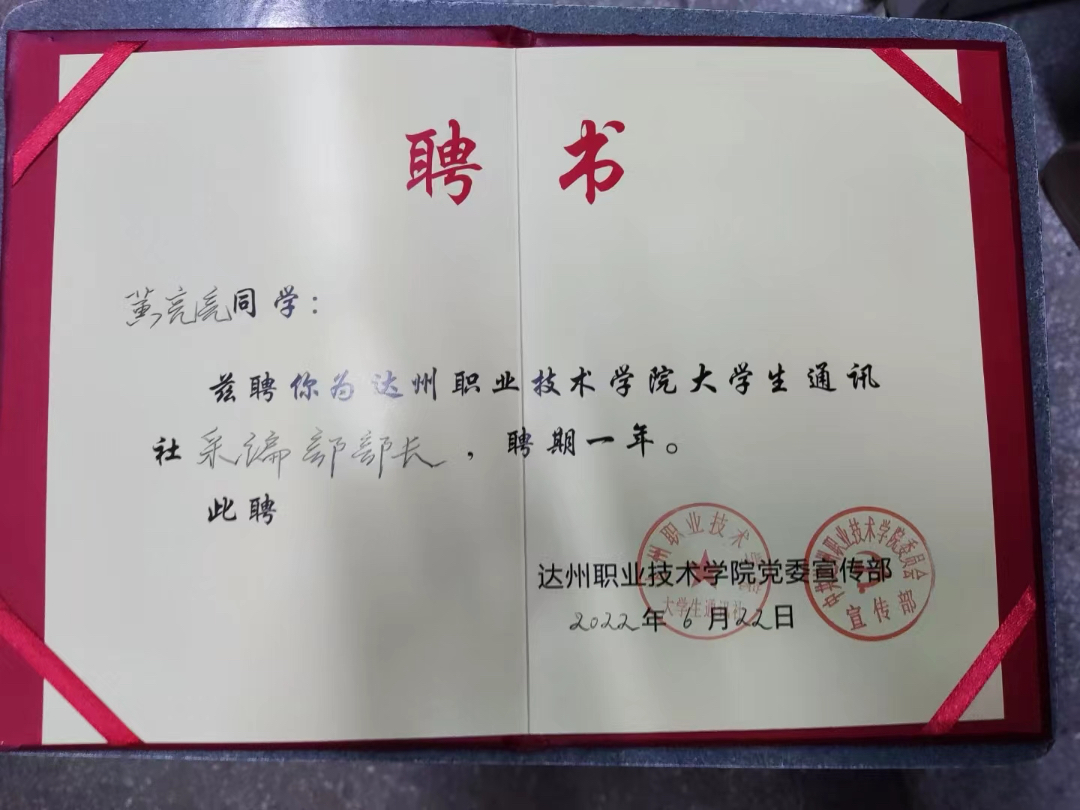 聘书
亮亮同学：
兹聘你为达州职业技术学院大学生通讯
社采编部部长，聘期一年。
此聘
达州职业技术学院党委宣传部
2022年6月22日
州职业技术学
大学生通讯社
中共达州职业技术学院委员会
宣传部